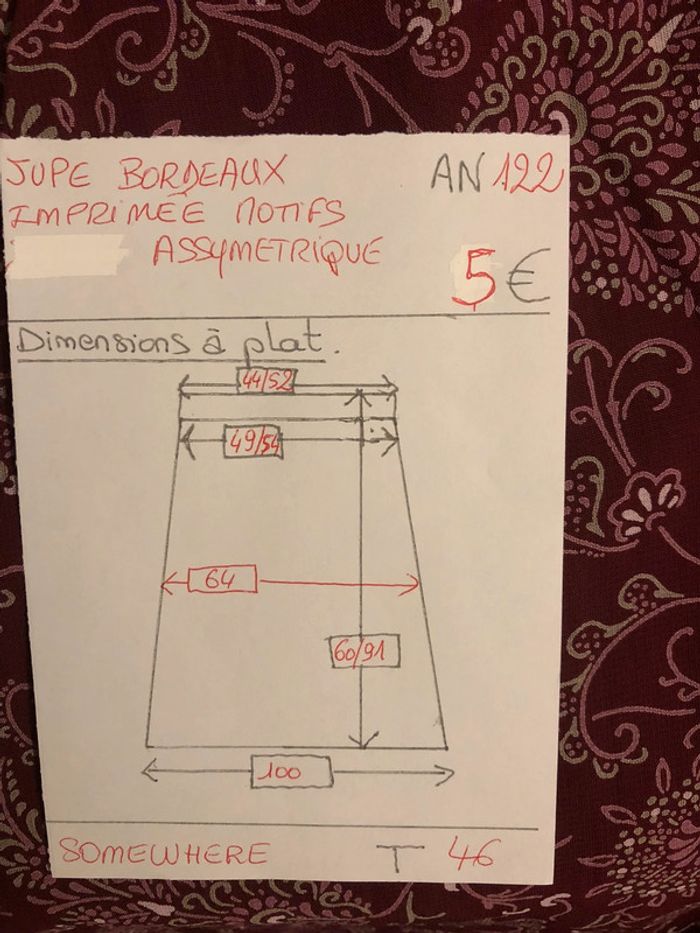 JUPE BORDEAUX AN 122
IMPRIMÉE MOTIFS
ASSYMETRIQUE
5€
Dimensions à plat.
44/52
49/54
64
60/91
100
SOMEWHERE T 46